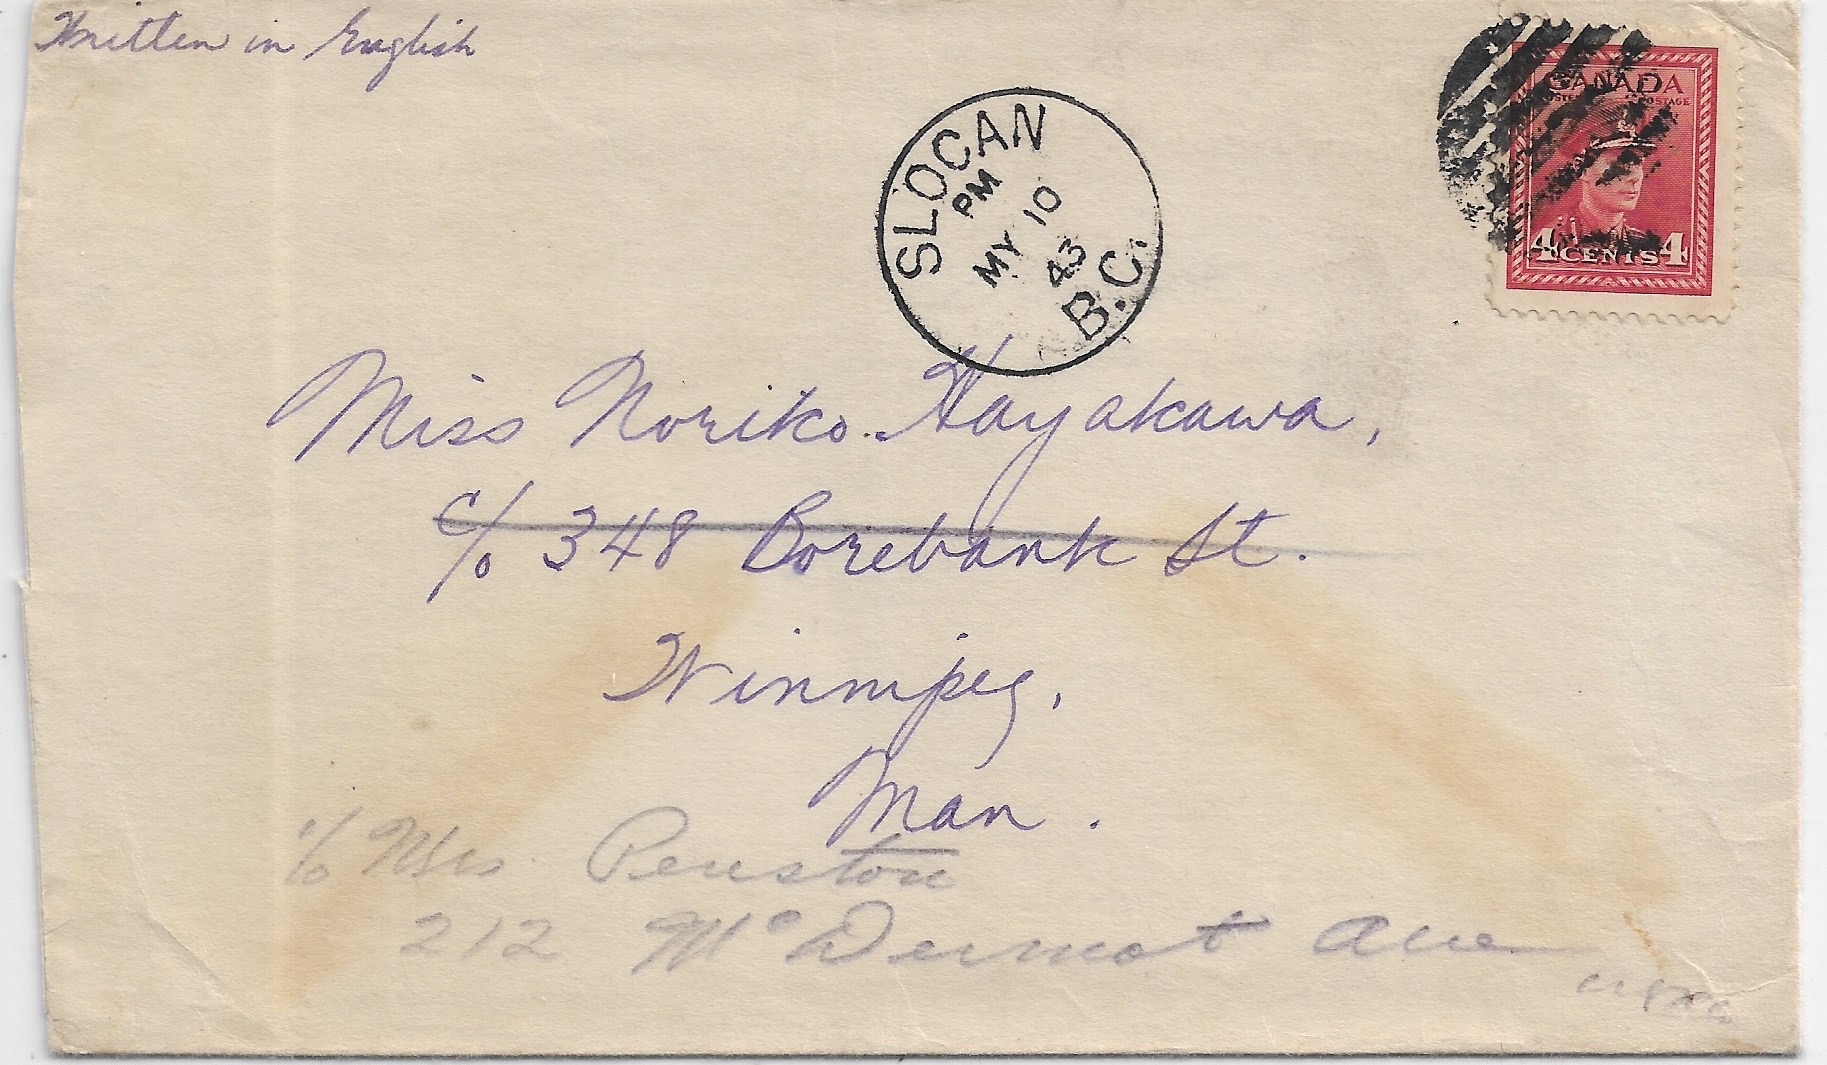 Written in English
SLOCAN
PM
MY 10
43
B.C.
CANADA
POSTES POSTAGE
4 CENTS 4
Miss Noriko Hayakawa,
c/o 348 Borebank St.
Winnipeg,
Man.
c/o Mrs. Penston
212 McDermot Ave